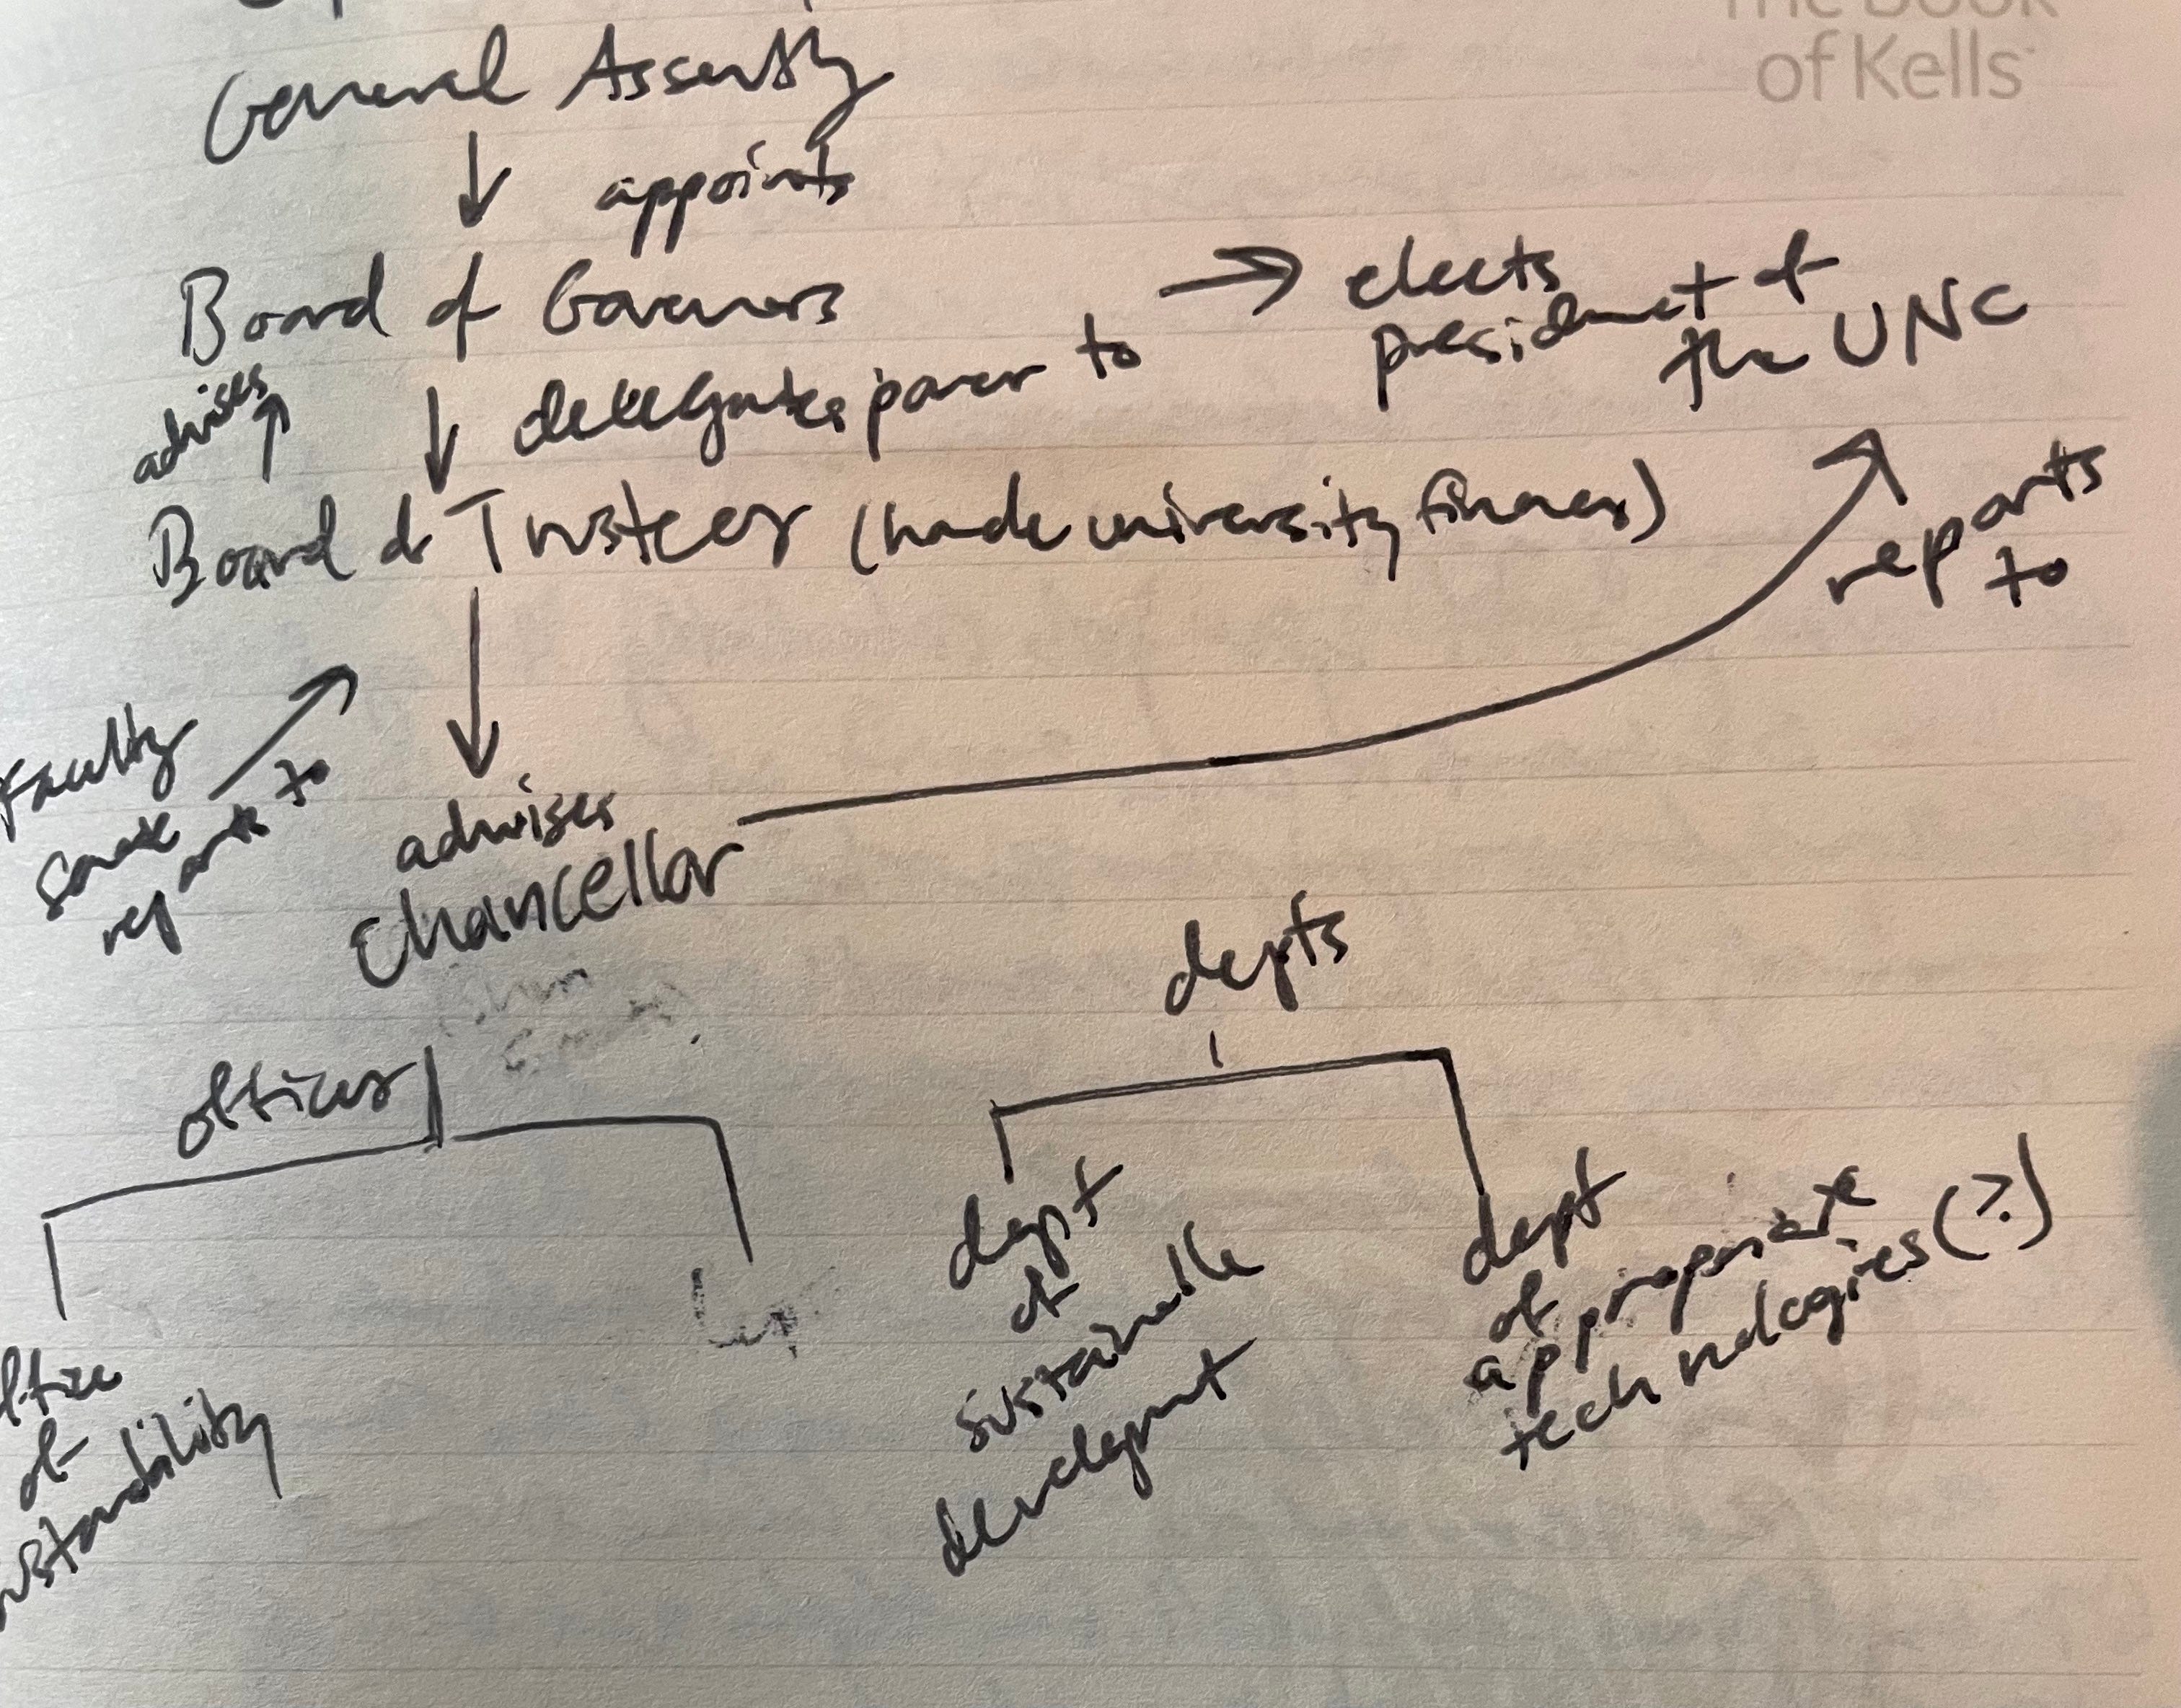 The Book
of Kells
General Assembly
appoints
Board of Governors
elects
president of
the UNC
advises
delegates power to
Board of Trustees (handle university finances)
reports
to
Faculty
Senate
reports to
advises
Chancellor
depts
offices
dept
of
sustainable
development
dept
of
appropriate
technologies (?)
of